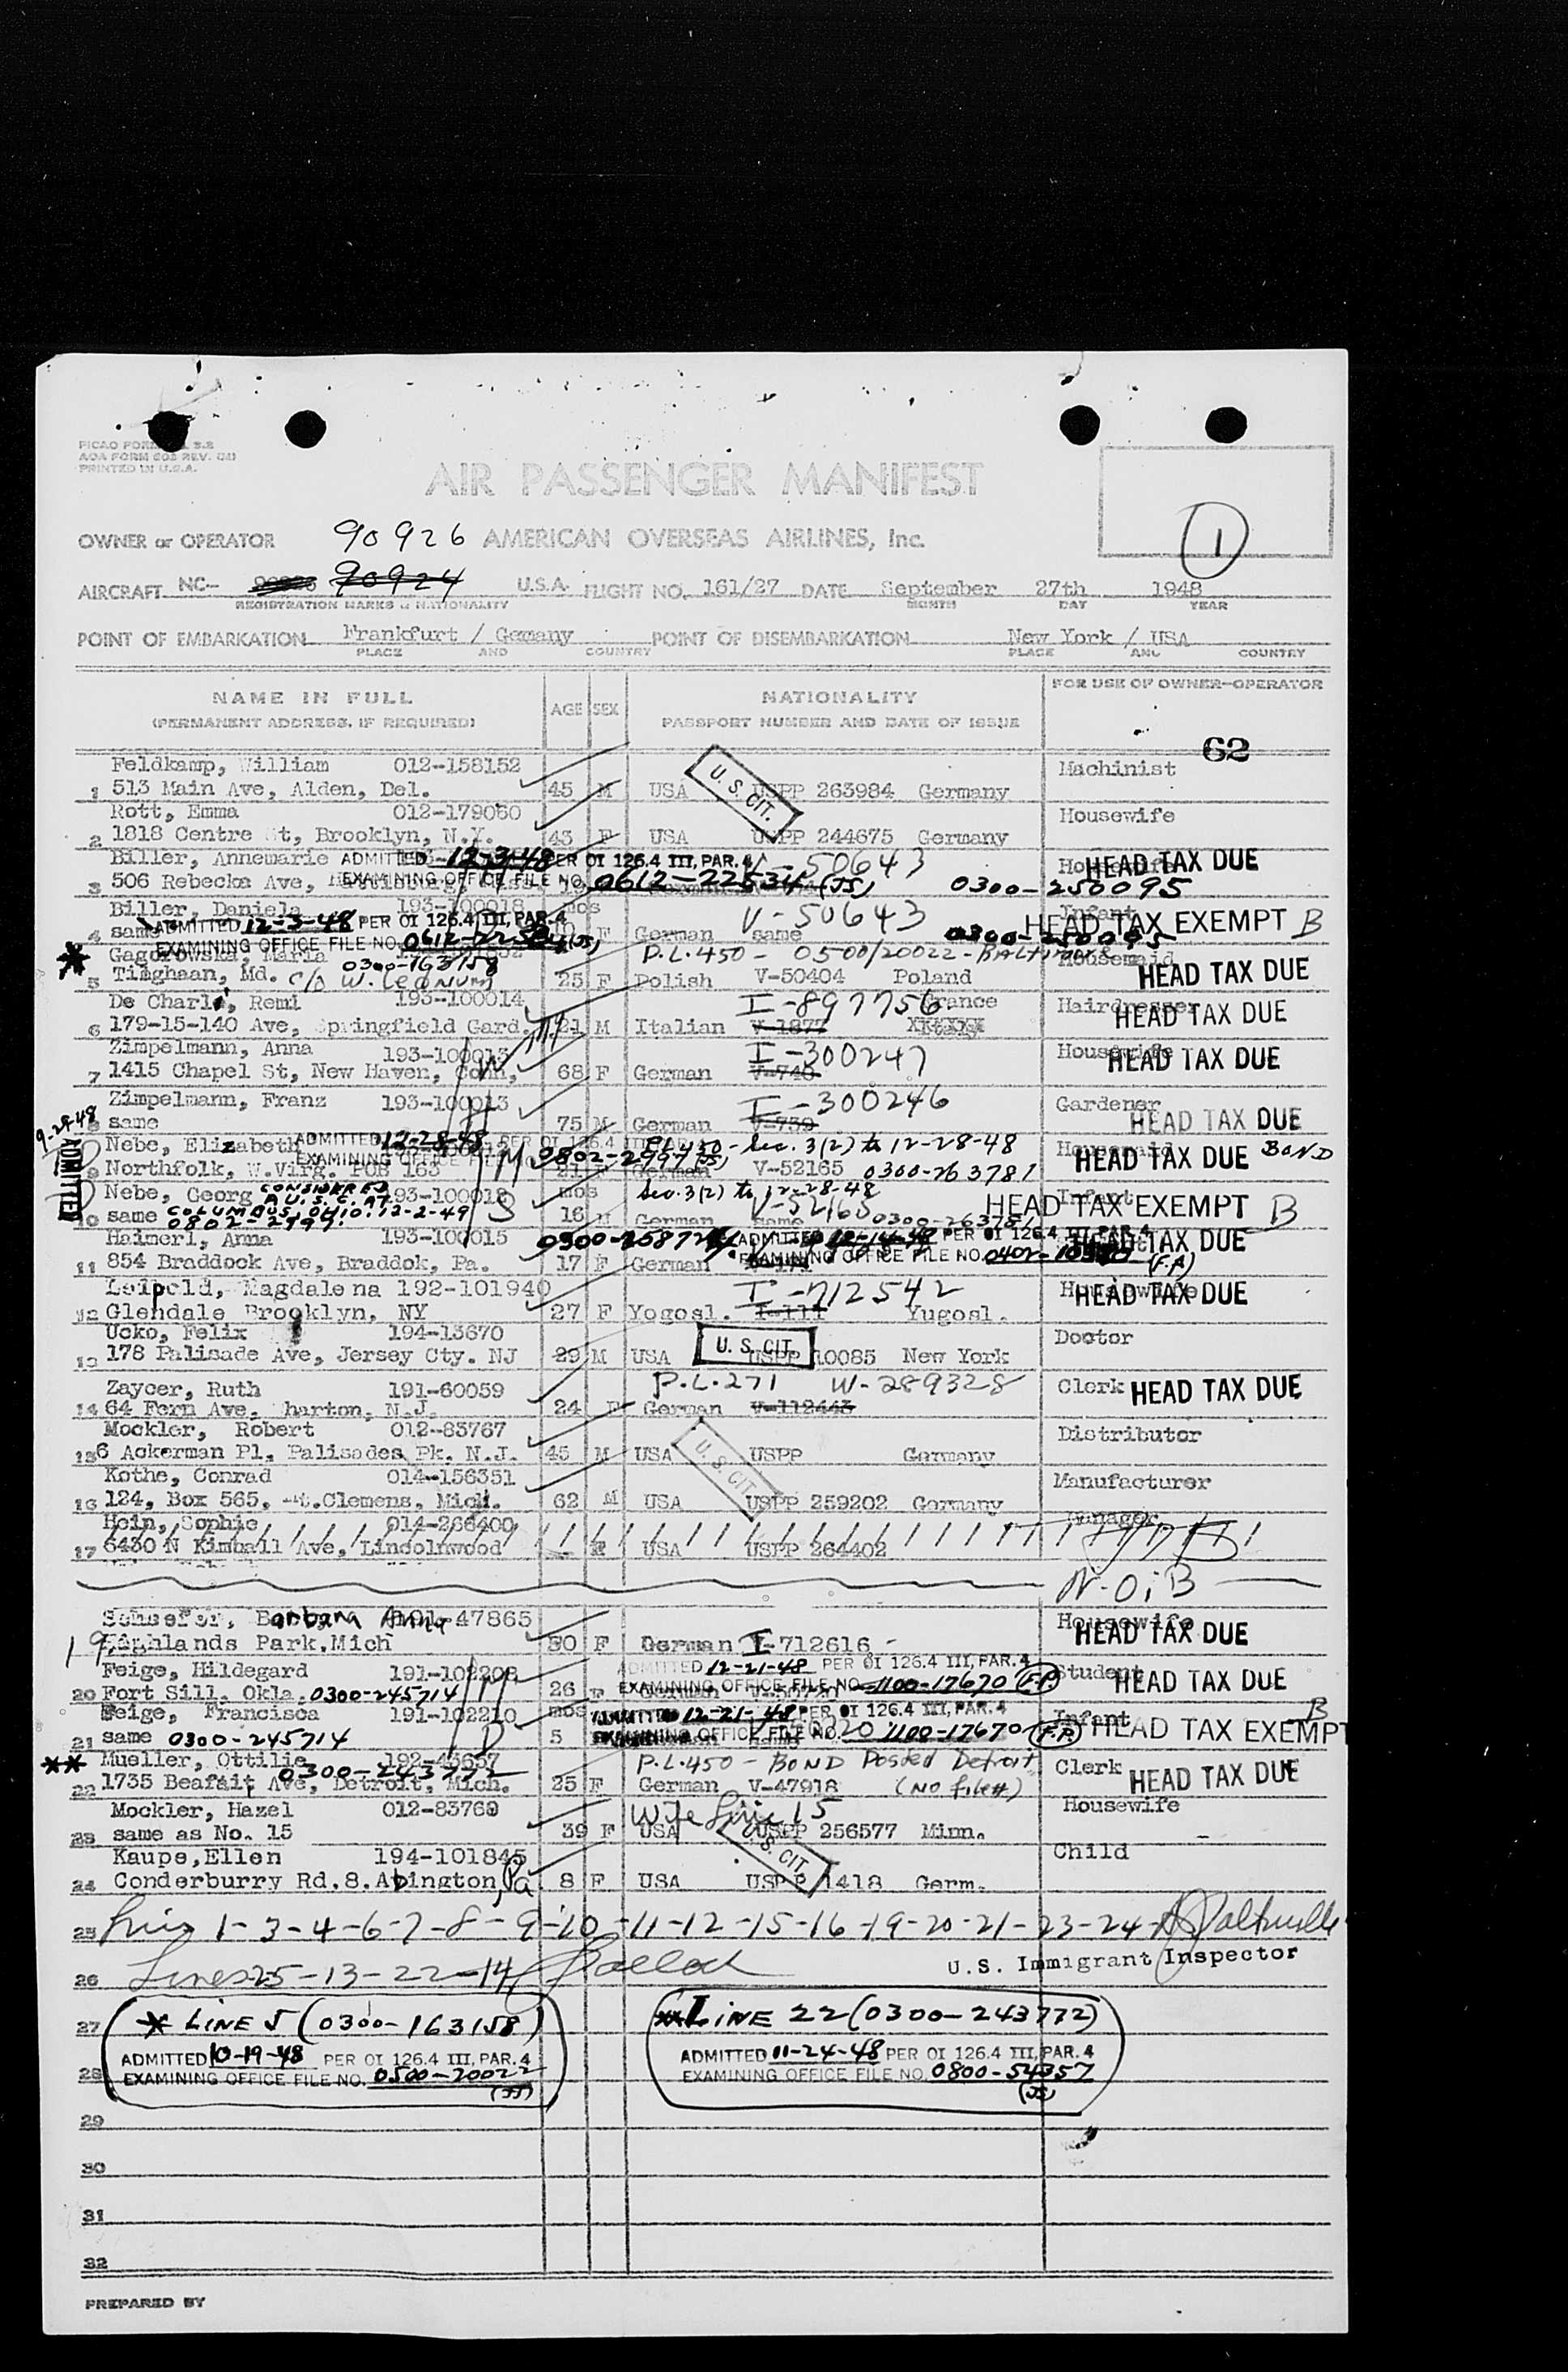 AOA FORM
PRINTED IN U.S.A.
AIR PASSENGER MANIFEST
1
OWNER or OPERATOR 90926 AMERICAN OVERSEAS AIRLINES, Inc.
AIRCRAFT NC- 90924 U.S.A. FLIGHT NO. 161/27 DATE September 27th 1948
REGISTRATION MARKS & NATIONALITY MONTH DAY YEAR
POINT OF EMBARKATION Frankfurt / Gemany POINT OF DISEMBARKATION New York / USA
PLACE AND COUNTRY PLACE AND COUNTRY
NAME IN FULL AGE SEX NATIONALITY FOR USE OF OWNER-OPERATOR
(PERMANENT ADDRESS, IF REQUIRED) PASSPORT NUMBER AND DATE OF ISSUE
62
Feldkamp, William 012-158152 Machinist
1 513 Main Ave, Alden, Del. 45 M USA USPP 263984 Germany
U. S. CIT.
Rott, Emma 012-179060 Housewife
2 1818 Centre St, Brooklyn, N.Y. 43 F USA USPP 244675 Germany
Biller, Annemarie ADMITTED 12-3-48 PER OI 126.4 III, PAR. 4 V-50643 HEAD TAX DUE
3 506 Rebecka Ave, EXAMINING OFFICE FILE NO. 0612-22534 (JS) 0300-250095
Biller, Daniela 193-100018 mos V-50643 Infant HEAD TAX EXEMPT B
4 same ADMITTED 12-3-48 PER OI 126.4 III, PAR. 4 F German same 0300-250095
EXAMINING OFFICE FILE NO. 0612-22534 (JS)
* Gagorowska, Maria 0300-163158 P.L.450 - 0500/20022 - BALTIMORE Housemaid
5 Timghaan, Md. c/o W. 25 F Polish V-50404 Poland HEAD TAX DUE
De Charle, Remi 193-100014 I-897756 France Hairdresser
6 179-15-140 Ave, Springfield Gard. 21 M Italian V-1877 HEAD TAX DUE
Zimpelmann, Anna 193-100013 I-300247 Housewife HEAD TAX DUE
7 1415 Chapel St, New Haven, Conn, 68 F German V-740
Zimpelmann, Franz 193-100013 I-300246 Gardener
8 same 75 M German V-739 HEAD TAX DUE
9-28-48 ADMITTED
Nebe, Elizabeth ADMITTED 12-28-48 PER OI 126.4 III PL450 - Sec. 3(2) to 12-28-48 Housemaid
EXAMINING OFFICE FILE 0802-2997 (JS)
9 Northfolk, W.Virg. POB 163 21 F German V-52165 0300-263781 HEAD TAX DUE BOND
Nebe, Georg CONSIDERED 193-100012 mos Sec. 3(2) to 12-28-48 Infant
A U.S.C. AT
10 same COLUMBUS, OHIO. 12-2-49 16 M German V-52165 same 0300-263781 HEAD TAX EXEMPT B
0802-2997.
Haimerl, Anna 193-100015 ADMITTED 12-14-48 PER OI 126.4 III PAR. 4 HEAD TAX DUE
11 854 Braddock Ave, Braddok, Pa. 17 F German EXAMINING OFFICE FILE NO. (F.P.)
Leipold, Magdalena 192-101940 I-712542 Housewife HEAD TAX DUE
12 Glendale Brooklyn, NY 27 F Yogosl. I-111 Yugosl.
Ucko, Felix 194-13670 Doctor
13 178 Palisade Ave, Jersey Cty. NJ 29 M USA U. S. CIT. USPP 10085 New York
Zaycer, Ruth 191-60059 P.L.271 W-289328 Clerk HEAD TAX DUE
14 64 Fern Ave, harton, N.J. 24 F German V-112443
Mockler, Robert 012-83767 Distributor
15 6 Ackerman Pl, Palisades Pk. N.J. 45 M USA USPP Germany
U. S. CIT.
Kothe, Conrad 014-156351 Manufacturer
16 124, Box 565, Mt.Clemens, Mich. 62 M USA USPP 259202 Germany
Hein, Sophie 014-266400 Manager
17 6430 N Kimball Ave, Lincolnwood F USA USPP 264402
N.O.B
Schaefer, Barbara Anna 47865 Housewife
19 Highlands Park, Mich 30 F German I-712616 HEAD TAX DUE
Feige, Hildegard 191-102208 ADMITTED 12-21-48 PER OI 126.4 III, PAR. 4 Student HEAD TAX DUE
20 Fort Sill, Okla. 0300-245714 26 F EXAMINING OFFICE FILE NO. 1100-17670 (F.P.)
Feige, Francisca 191-102210 mos ADMITTED 12-21-48 PER OI 126.4 III, PAR. 4 Infant B
21 same 0300-245714 5 EXAMINING OFFICE FILE NO. 1100-17670 (F.P.) HEAD TAX EXEMPT
** Mueller, Ottilie 192-45657 P.L.450 - BOND Posted Detroit Clerk
0300-243772
22 1735 Beafait Ave, Detroit, Mich. 25 F German V-47918 (NO file#) HEAD TAX DUE
Mockler, Hazel 012-83768 Wife line 15 Housewife
23 same as No. 15 39 F USA USPP 256577 Minn.
U. S. CIT.
Kaupe, Ellen 194-101845 Child
24 Conderburry Rd.8.Abington, Pa. 8 F USA USPP 1418 Germ.
25 Lines 1-3-4-6-7-8-9-10-11-12-15-16-19-20-21-23-24-
U.S. Immigrant Inspector
26 Lines 25-13-22-14
27 * LINE 5 (0300-163158) ** LINE 22 (0300-243772)
ADMITTED 10-19-48 PER OI 126.4 III, PAR. 4 ADMITTED 11-24-48 PER OI 126.4 III, PAR. 4
28 EXAMINING OFFICE FILE NO. 0500-20022 (JS) EXAMINING OFFICE FILE NO. 0800-54357 (JS)
29
30
31
32
PREPARED BY